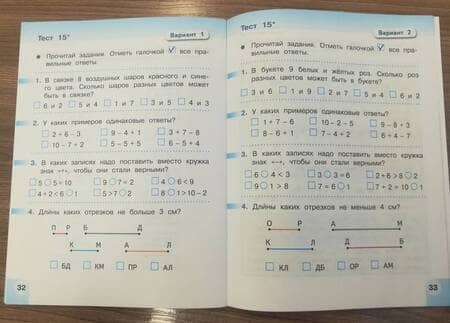 Тест 15*
Вариант 1
• Прочитай задания. Отметь галочкой ✓ все пра-
вильные ответы.
1. В связке 8 воздушных шаров красного и сине-
го цвета. Сколько шаров разных цветов может
быть в связке?
6 и 2 5 и 4 1 и 7 3 и 5 4 и 3
2. У каких примеров одинаковые ответы?
2 + 6 - 3 9 - 4 + 1 3 + 7 - 8
10 - 7 + 2 5 - 5 + 6 - 5 + 4
3. В каких записях надо поставить вместо кружка
знак «+», чтобы они стали верными?
5 ○ 5 = 10 9 ○ 7 = 2 4 ○ 6 < 9
5 > 7 ○ 2 8 ○ 1 > 10 - 2
4. Длины каких отрезков не больше 3 см?
П Р Б Д
К М А Л
БД КМ ПР АЛ
32
Тест 15*
Вариант 2
• Прочитай задания. Отметь галочкой ✓ все
правильные ответы.
1. В букете 9 белых и жёлтых роз. Сколько роз
разных цветов может быть в букете?
3 и 6 1 и 9 2 и 7 5 и 4 6 и 2
2. У каких примеров одинаковые ответы?
1 + 7 - 6 10 - 2 - 5 9 - 8 + 3
8 - 6 + 1 7 - 4 + 2 6 + 4 - 7
3. В каких записях надо поставить вместо кружка
чтобы они стали верными?
6 ○ 4 < 3 3 ○ 3 = 6 2 + 6 > 8 ○ 2
9 ○ 1 > 8 7 = 6 ○ 1 7 + 2 > 10 ○ 1
4. Длины каких отрезков не меньше 4 см?
О Р А М
К Л Д Б
КЛ ДБ ОР АМ
33